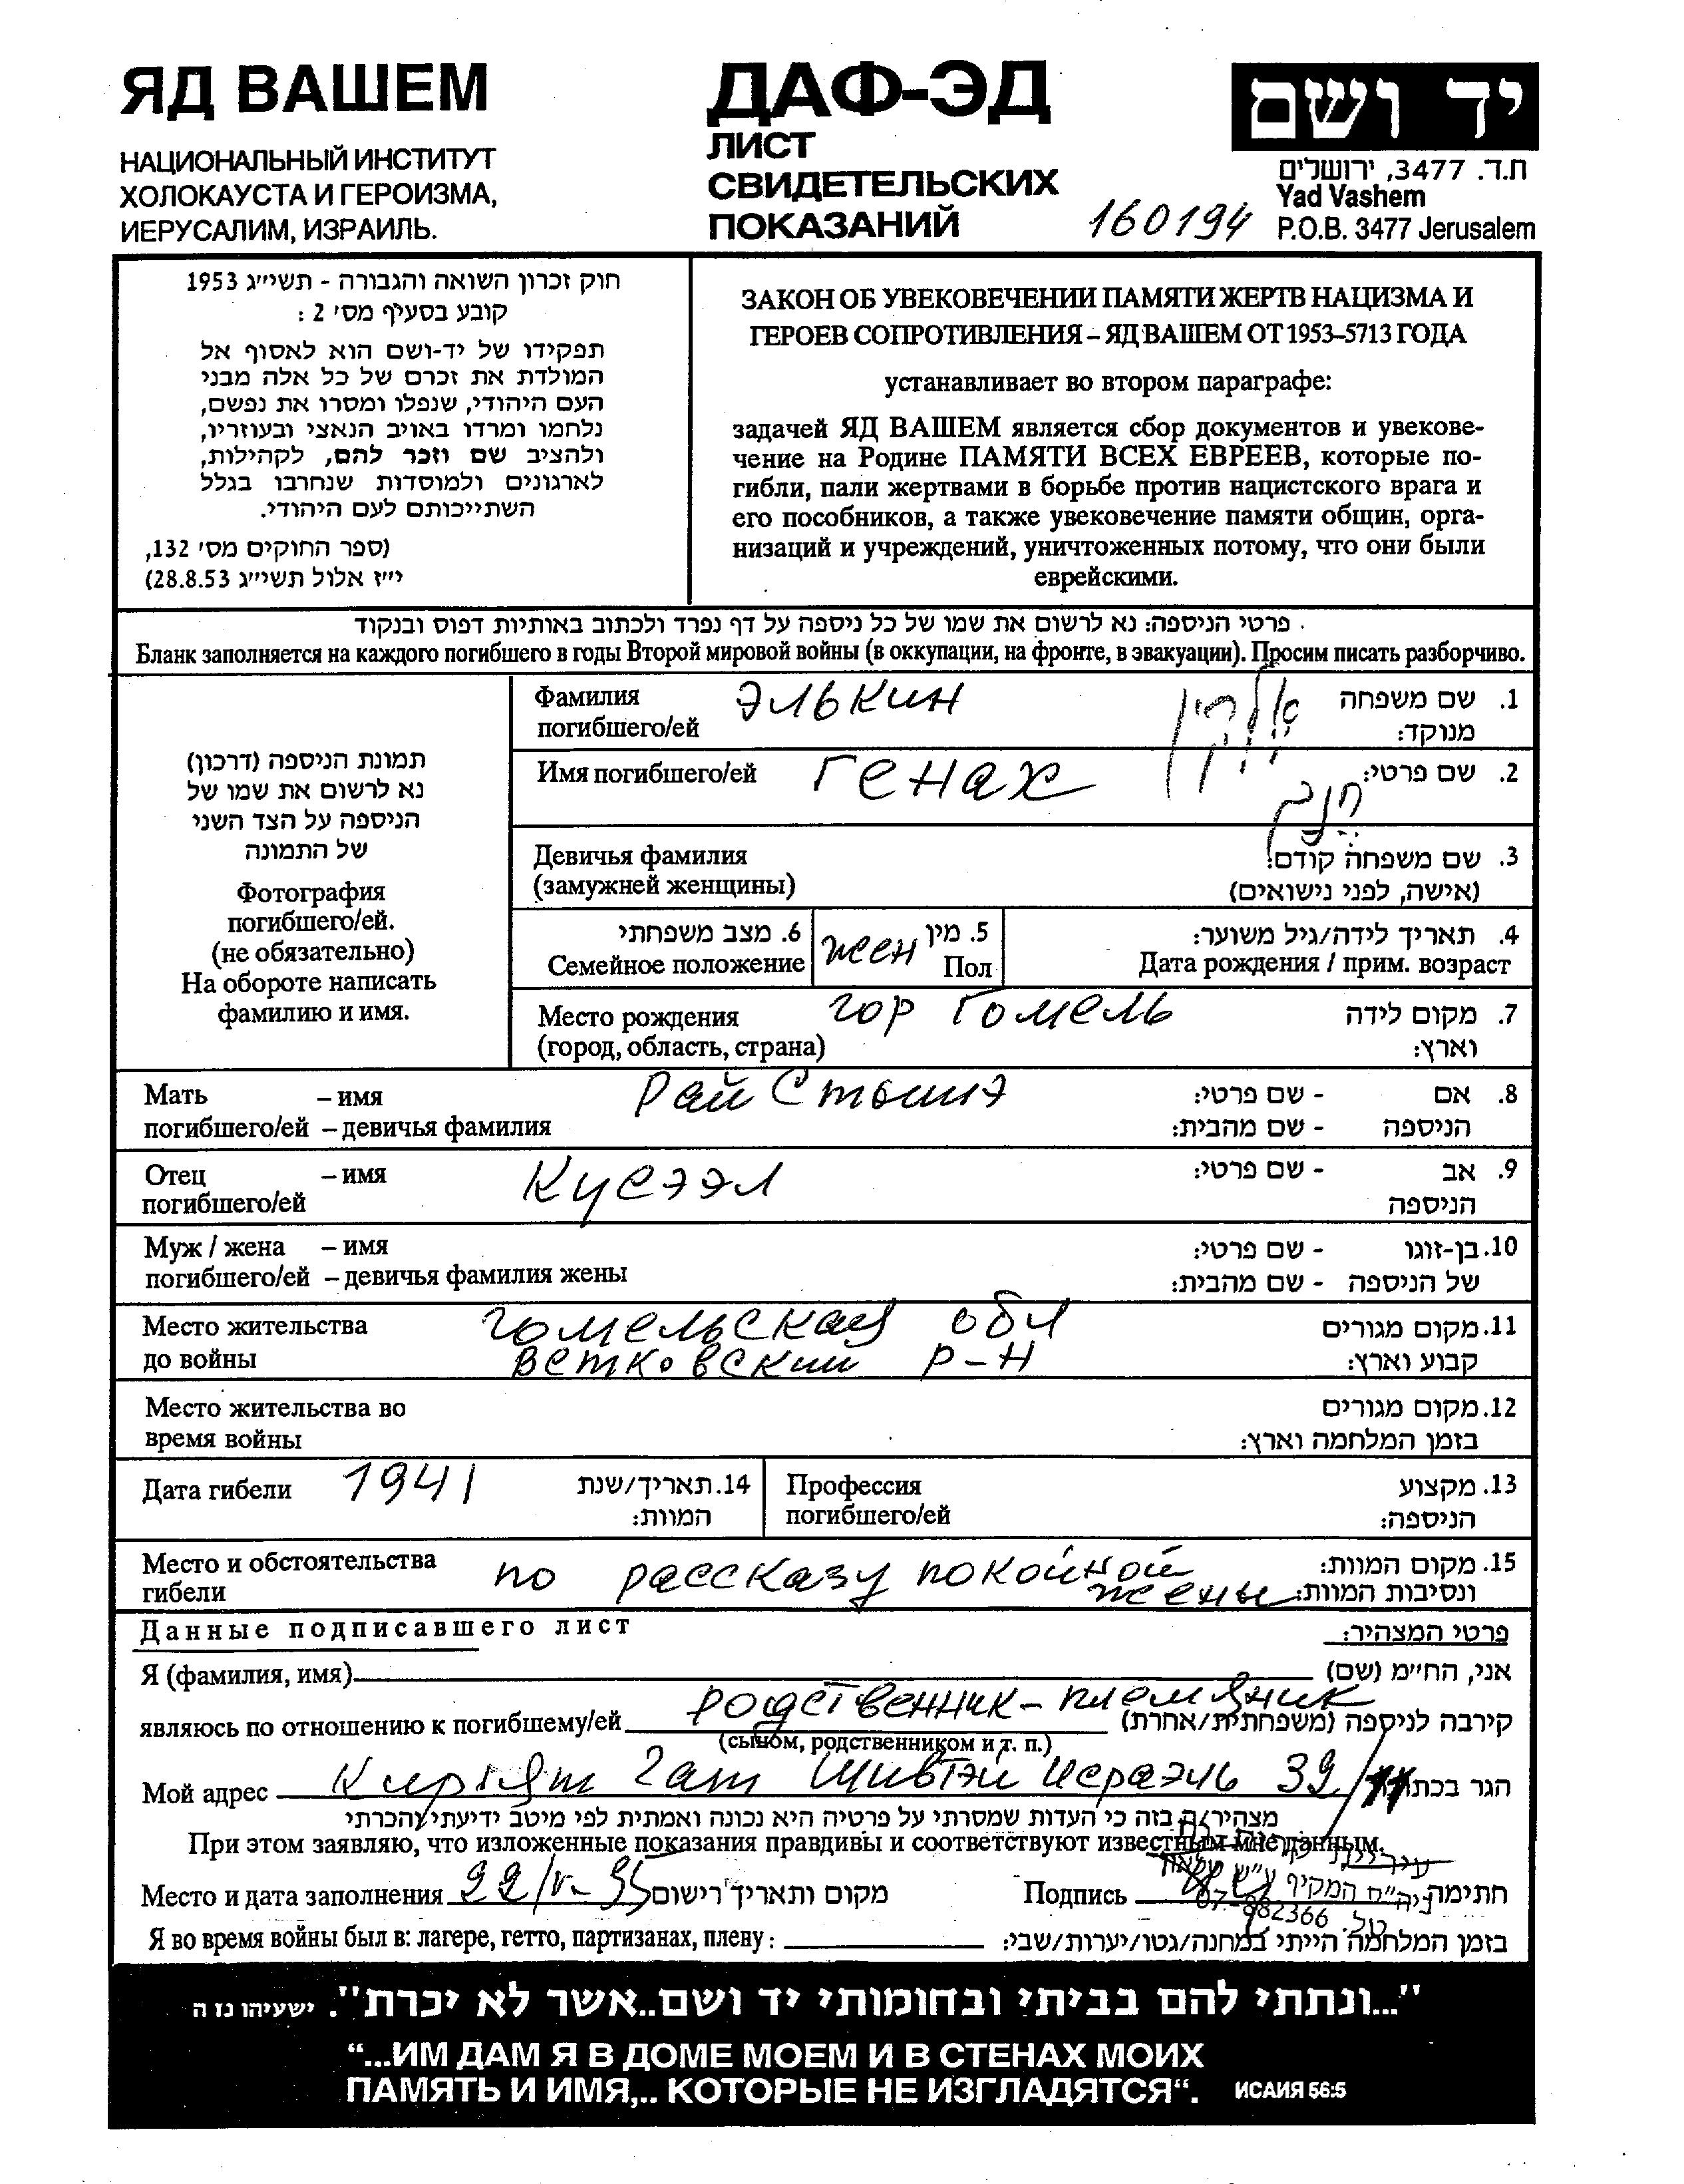 ЯД ВАШЕМ
НАЦИОНАЛЬНЫЙ ИНСТИТУТ
ХОЛОКАУСТА И ГЕРОИЗМА,
ИЕРУСАЛИМ, ИЗРАИЛЬ.
ДАФ-ЭД
ЛИСТ
СВИДЕТЕЛЬСКИХ
ПОКАЗАНИЙ
160194
יד ושם
ת.ד. 3477, ירושלים
Yad Vashem
P.O.B. 3477 Jerusalem
חוק זכרון השואה והגבורה - תשי״ג 1953
קובע בסעיף מס׳ 2 :
תפקידו של יד-ושם הוא לאסוף אל
המולדת את זכרם של כל אלה מבני
העם היהודי, שנפלו ומסרו את נפשם,
נלחמו ומרדו באויב הנאצי ובעוזריו,
ולהציב שם וזכר להם, לקהילות,
לארגונים ולמוסדות שנחרבו בגלל
השתייכותם לעם היהודי.
(ספר החוקים מס׳ 132,
י״ז אלול תשי״ג 28.8.53)
ЗАКОН ОБ УВЕКОВЕЧЕНИИ ПАМЯТИ ЖЕРТВ НАЦИЗМА И
ГЕРОЕВ СОПРОТИВЛЕНИЯ – ЯД ВАШЕМ ОТ 1953–5713 ГОДА
устанавливает во втором параграфе:
задачей ЯД ВАШЕМ является сбор документов и увекове-
чение на Родине ПАМЯТИ ВСЕХ ЕВРЕЕВ, которые по-
гибли, пали жертвами в борьбе против нацистского врага и
его пособников, а также увековечение памяти общин, орга-
низаций и учреждений, уничтоженных потому, что они были
еврейскими.
פרטי הניספה: נא לרשום את שמו של כל ניספה על דף נפרד ולכתוב באותיות דפוס ובנקוד
Бланк заполняется на каждого погибшего в годы Второй мировой войны (в оккупации, на фронте, в эвакуации). Просим писать разборчиво.
תמונת הניספה (דרכון)
נא לרשום את שמו של
הניספה על הצד השני
של התמונה
Фотография
погибшего/ей.
(не обязательно)
На обороте написать
фамилию и имя.
Фамилия Элькин אלקין 1. שם משפחה
погибшего/ей מנוקד:
Имя погибшего/ей Генах חנך 2. שם פרטי:
Девичья фамилия 3. שם משפחה קודם:
(замужней женщины) (אישה, לפני נישואים)
6. מצב משפחתי
Семейное положение
5. מין
жен Пол
4. תאריך לידה/גיל משוער:
Дата рождения / прим. возраст
Место рождения гор Гомель 7. מקום לידה
(город, область, страна) וארץ:
Мать – имя Рай Стысиэ 8. אם - שם פרטי:
погибшего/ей – девичья фамилия הניספה - שם מהבית:
Отец – имя Кусээл 9. אב - שם פרטי:
погибшего/ей הניספה
Муж / жена – имя 10. בן-זוגו - שם פרטי:
погибшего/ей – девичья фамилия жены של הניספה - שם מהבית:
Место жительства гомельская обл 11. מקום מגורים
до войны Ветковский р-н קבוע וארץ:
Место жительства во 12. מקום מגורים
время войны בזמן המלחמה וארץ:
Дата гибели 1941 14. תאריך/שנת
המוות:
Профессия 13. מקצוע
погибшего/ей הניספה:
Место и обстоятельства по рассказу покойной 15. מקום המוות:
гибели жены ונסיבות המוות:
Данные подписавшего лист פרטי המצהיר:
Я (фамилия, имя) אני, הח״מ (שם)
родственник-племяник
являюсь по отношению к погибшему/ей קירבה לניספה (משפחתית/אחרת)
(сыном, родственником и т. п.)
Мой адрес Кирьят Гат Шивтэй Исраэль 39/11 הגר בכתו
מצהיר/ה בזה כי העדות שמסרתי על פרטיה היא נכונה ואמתית לפי מיטב ידיעתי והכרתי
При этом заявляю, что изложенные показания правдивы и соответствуют известным мне данным.
Место и дата заполнения 22/V-95 מקום ותאריך רישום Подпись חתימה
ביה״ח המקיף ע״ש
טל. 07-882366
Я во время войны был в: лагере, гетто, партизанах, плену: בזמן המלחמה הייתי במחנה/גטו/יערות/שבי:
"...ונתתי להם בביתי ובחומותי יד ושם..אשר לא יכרת". ישעיהו נז ה
“...ИМ ДАМ Я В ДОМЕ МОЕМ И В СТЕНАХ МОИХ
ПАМЯТЬ И ИМЯ,.. КОТОРЫЕ НЕ ИЗГЛАДЯТСЯ“. ИСАИЯ 56:5